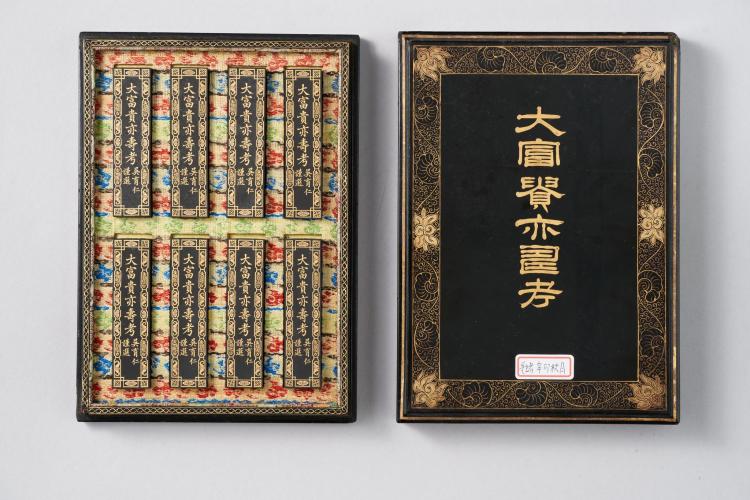 大富貴亦壽考
吳育仁
謹選
大富貴亦壽考
吳育仁
謹選
大富貴亦壽考
吳育仁
謹選
大富貴亦壽考
吳育仁
謹選
大富貴亦壽考
吳育仁
謹選
大富貴亦壽考
吳育仁
謹選
大富貴亦壽考
吳育仁
謹選
大富貴亦壽考
吳育仁
謹選
大富貴亦壽考
辛卯秋